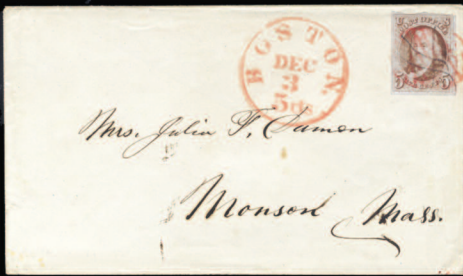 BOSTON.
DEC
3
5cts
POST OFFICE
5 5
Mrs. Julia F.
Monson Mass.